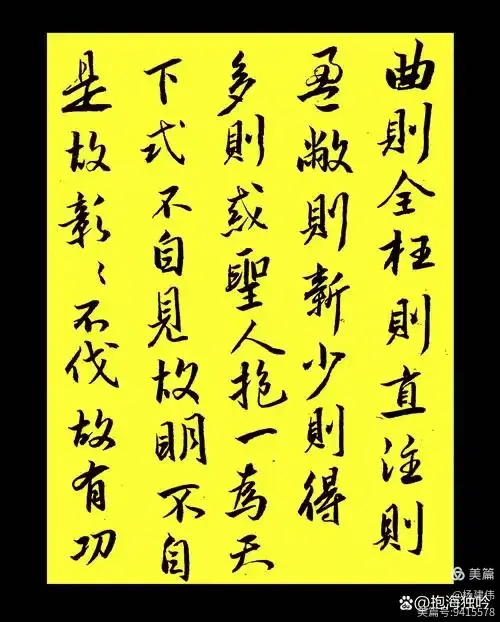 曲則全枉則直注則
盈敝則新少則得
多則或聖人抱一為天
下式不自見故明不自
是故彰〻不伐故有功
美篇
@杨建伟
美篇号:9415578
@抱海独吟